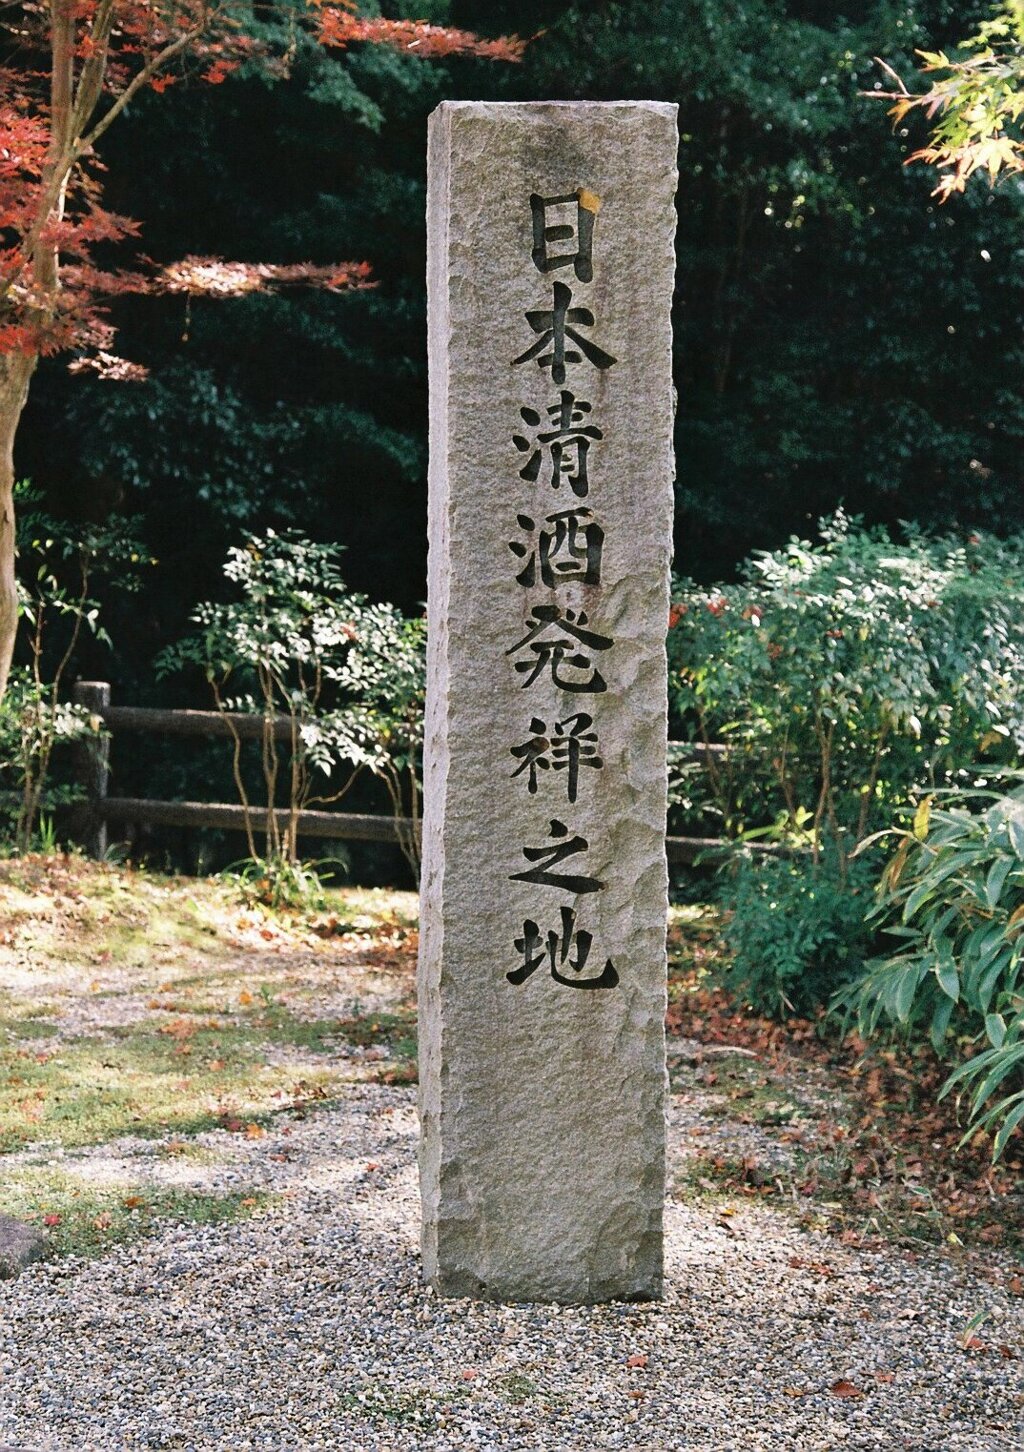 日本清酒発祥之地